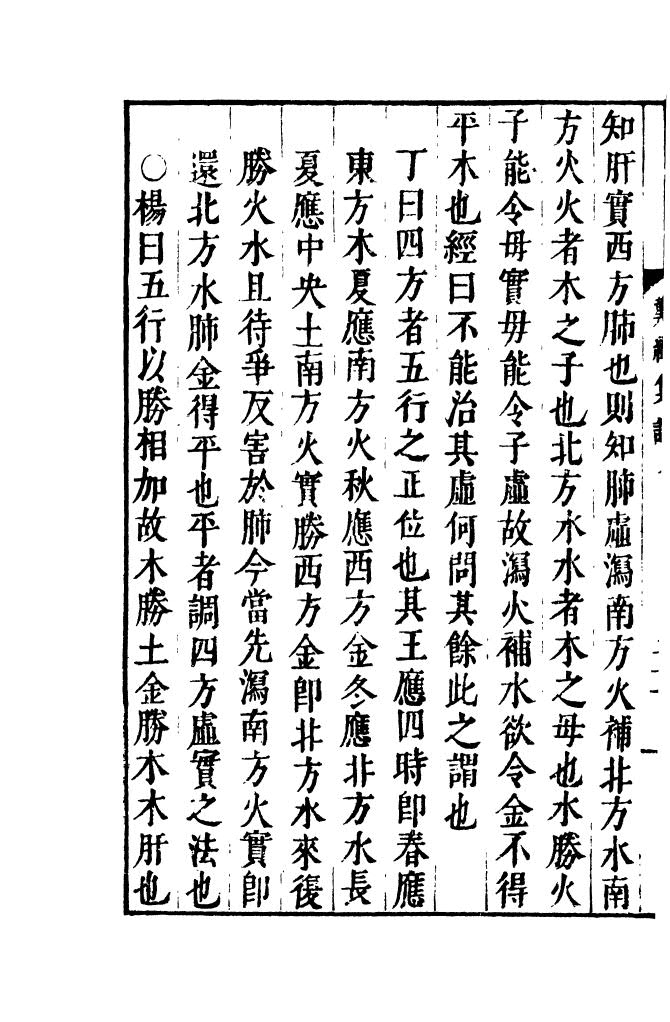 知肝實西方肺也則知肺虛瀉南方火補北方水南
方火火者木之子也北方水水者木之母也水勝火
子能令母實母能令子虛故瀉火補水欲令金不得
平木也經曰不能治其虛何問其餘此之謂也
丁曰四方者五行之正位也其王應四時即春應
東方木夏應南方火秋應西方金冬應北方水長
夏應中央土南方火實勝西方金即北方水來復
勝火水且待爭反害於肺今當先瀉南方火實即
還北方水肺金得平也平者調四方虛實之法也
○楊曰五行以勝相加故木勝土金勝木木肝也